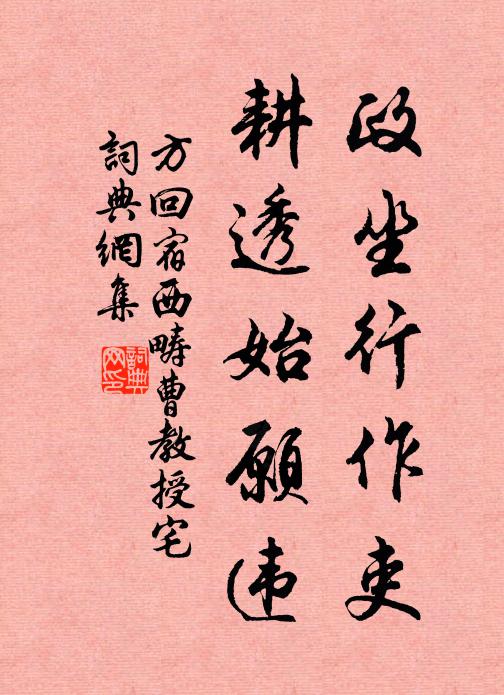 政坐行作吏
耕透始願违
方回宿西疇曹教授宅
詞典網集
詞典网印